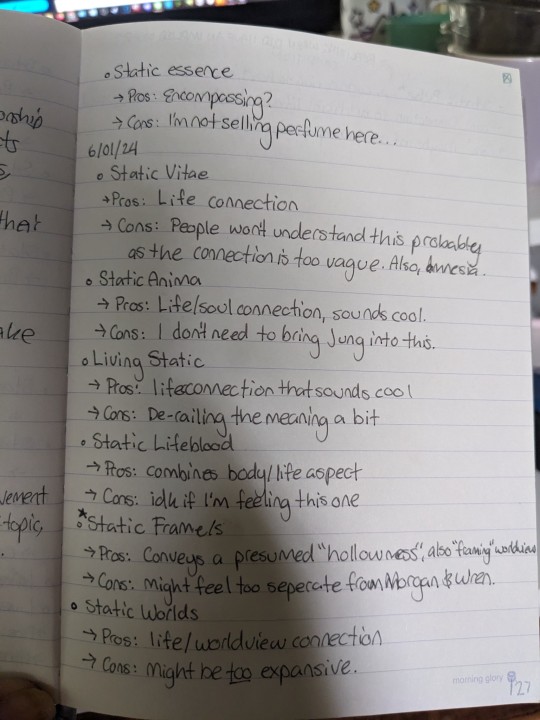 orship
• Static essence
→ Pros: Encompassing?
→ Cons: I'm not selling perfume here...
6/01/24
• Static Vitae
→ Pros: Life connection
→ Cons: People won't understand this probably
as the connection is too vague. Also, Amnesia.
that
• Static Anima
→ Pros: Life/soul connection, sounds cool.
→ Cons: I don't need to bring Jung into this.
• Living Static
→ Pros: life connection that sounds cool
→ Cons: De-railing the meaning a bit
• Static Lifeblood
→ Pros: combines body/life aspect
→ Cons: idk if I'm feeling this one
vement
topic,
* • Static Frame/s
→ Pros: Conveys a presumed "hollowness", also "framing" worldview
→ Cons: Might feel too seperate from Morgan & Wren.
• Static Worlds
→ Pros: life/worldview connection
→ Cons: Might be too expansive.
morning glory
127